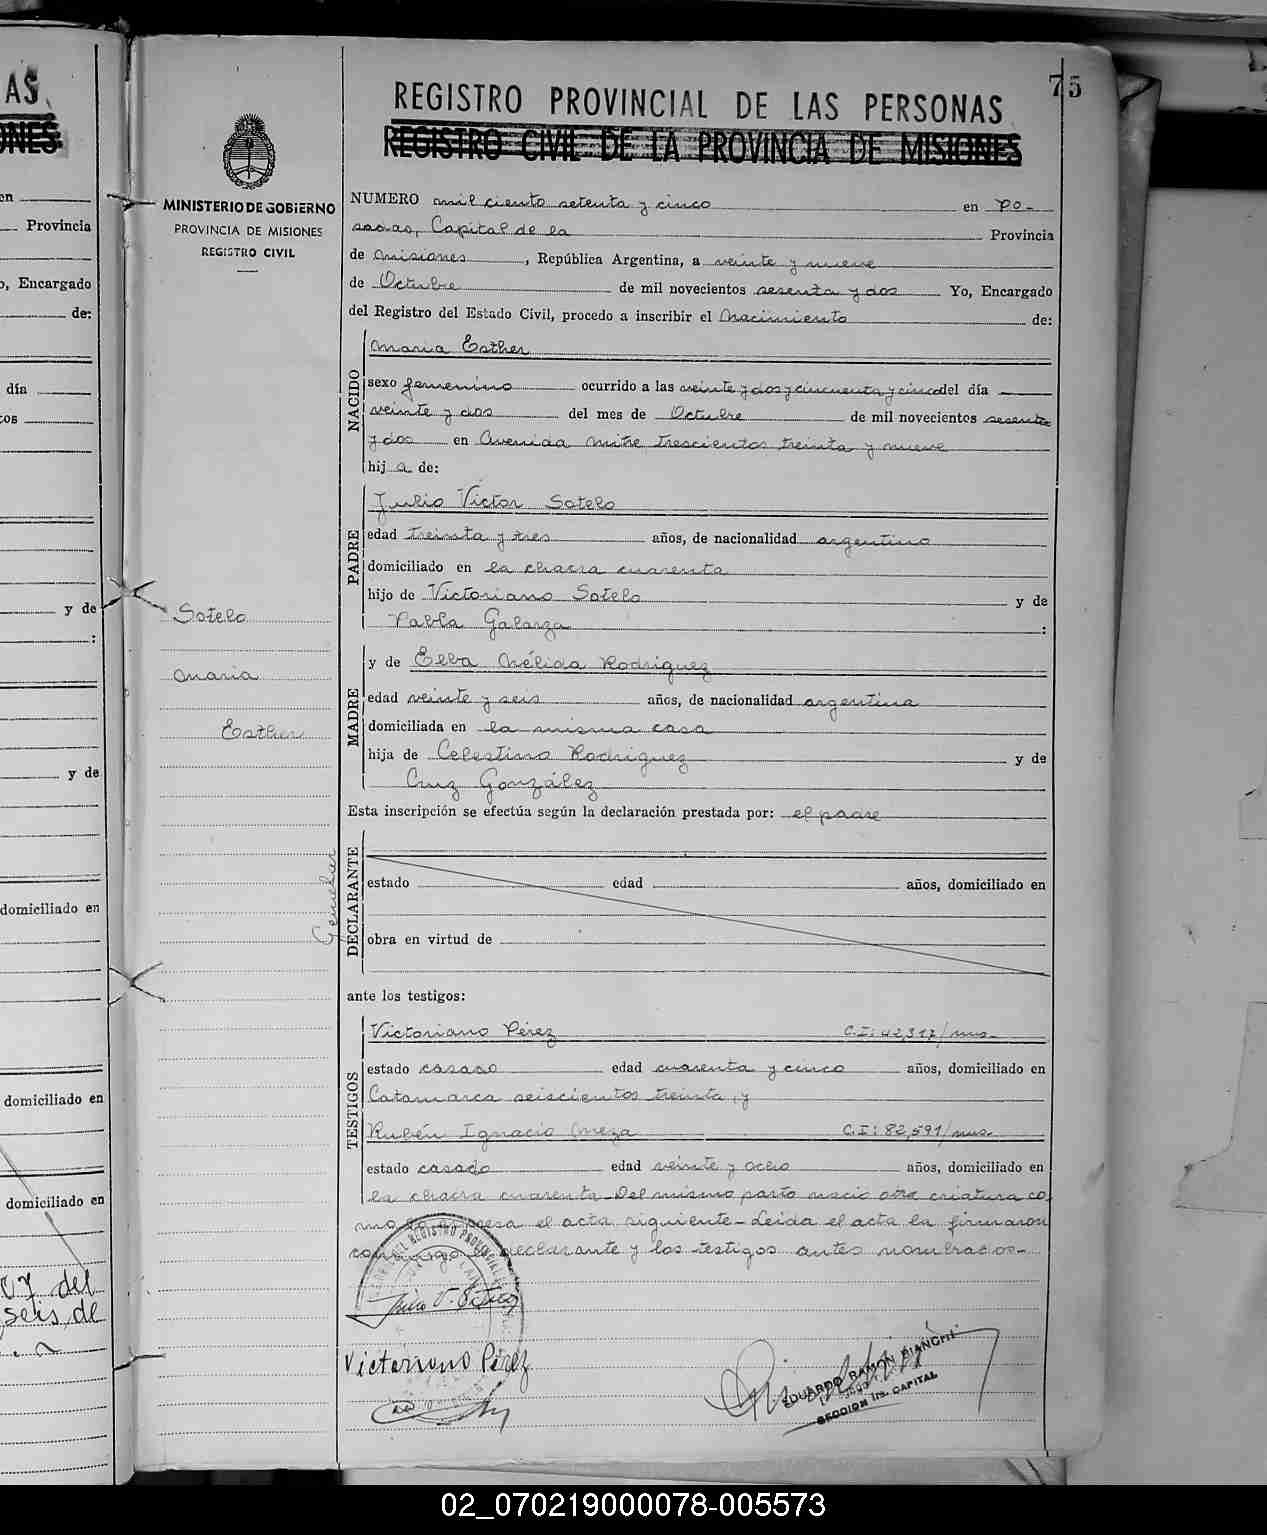 AS
ONES
en
Provincia
o, Encargado
de:
día
tos
y de
:
y de
domiciliado en
domiciliado en
domiciliado en
07 del
seis de
75
MINISTERIO DE GOBIERNO
PROVINCIA DE MISIONES
REGISTRO CIVIL
Sotelo
Maria
Esther
REGISTRO PROVINCIAL DE LAS PERSONAS
REGISTRO CIVIL DE LA PROVINCIA DE MISIONES
NUMERO mil ciento setenta y cinco en Po-
sadas, Capital de la Provincia
de Misiones, República Argentina, a veinte y nueve
de Octubre de mil novecientos sesenta y dos Yo, Encargado
del Registro del Estado Civil, procedo a inscribir el Nacimiento de:
NACIDO
Maria Esther
sexo femenino ocurrido a las veinte y dos y cincuenta y cinco del día
veinte y dos del mes de Octubre de mil novecientos sesenta
y dos en Avenida Mitre trescientos treinta y nueve
hija de:
PADRE
Julio Victor Sotelo
edad treinta y tres años, de nacionalidad argentino
domiciliado en la chacra cuarenta
hijo de Victoriano Sotelo y de
Pabla Galarza :
MADRE
y de Elba Nélida Rodriguez
edad veinte y seis años, de nacionalidad argentina
domiciliada en la misma casa
hija de Celestino Rodriguez y de
Cruz González
Esta inscripción se efectúa según la declaración prestada por: el padre
DECLARANTE
estado edad años, domiciliado en
obra en virtud de
ante los testigos:
TESTIGOS
Victoriano Pérez C.I: 42,317/mis.
estado casado edad cuarenta y cinco años, domiciliado en
Catamarca seiscientos treinta, y
Rubén Ignacio Meza C.I: 82,591/mis.
estado casado edad veinte y ocho años, domiciliado en
la chacra cuarenta - Del mismo parto nació otra criatura co-
mo lo expresa el acta siguiente - Leida el acta la firmaron
conmigo el declarante y los testigos antes nombrados -
Victoriano Pérez
EDUARDO RAMON BIANCHI
SECCION 1ra. CAPITAL
02_070219000078-005573